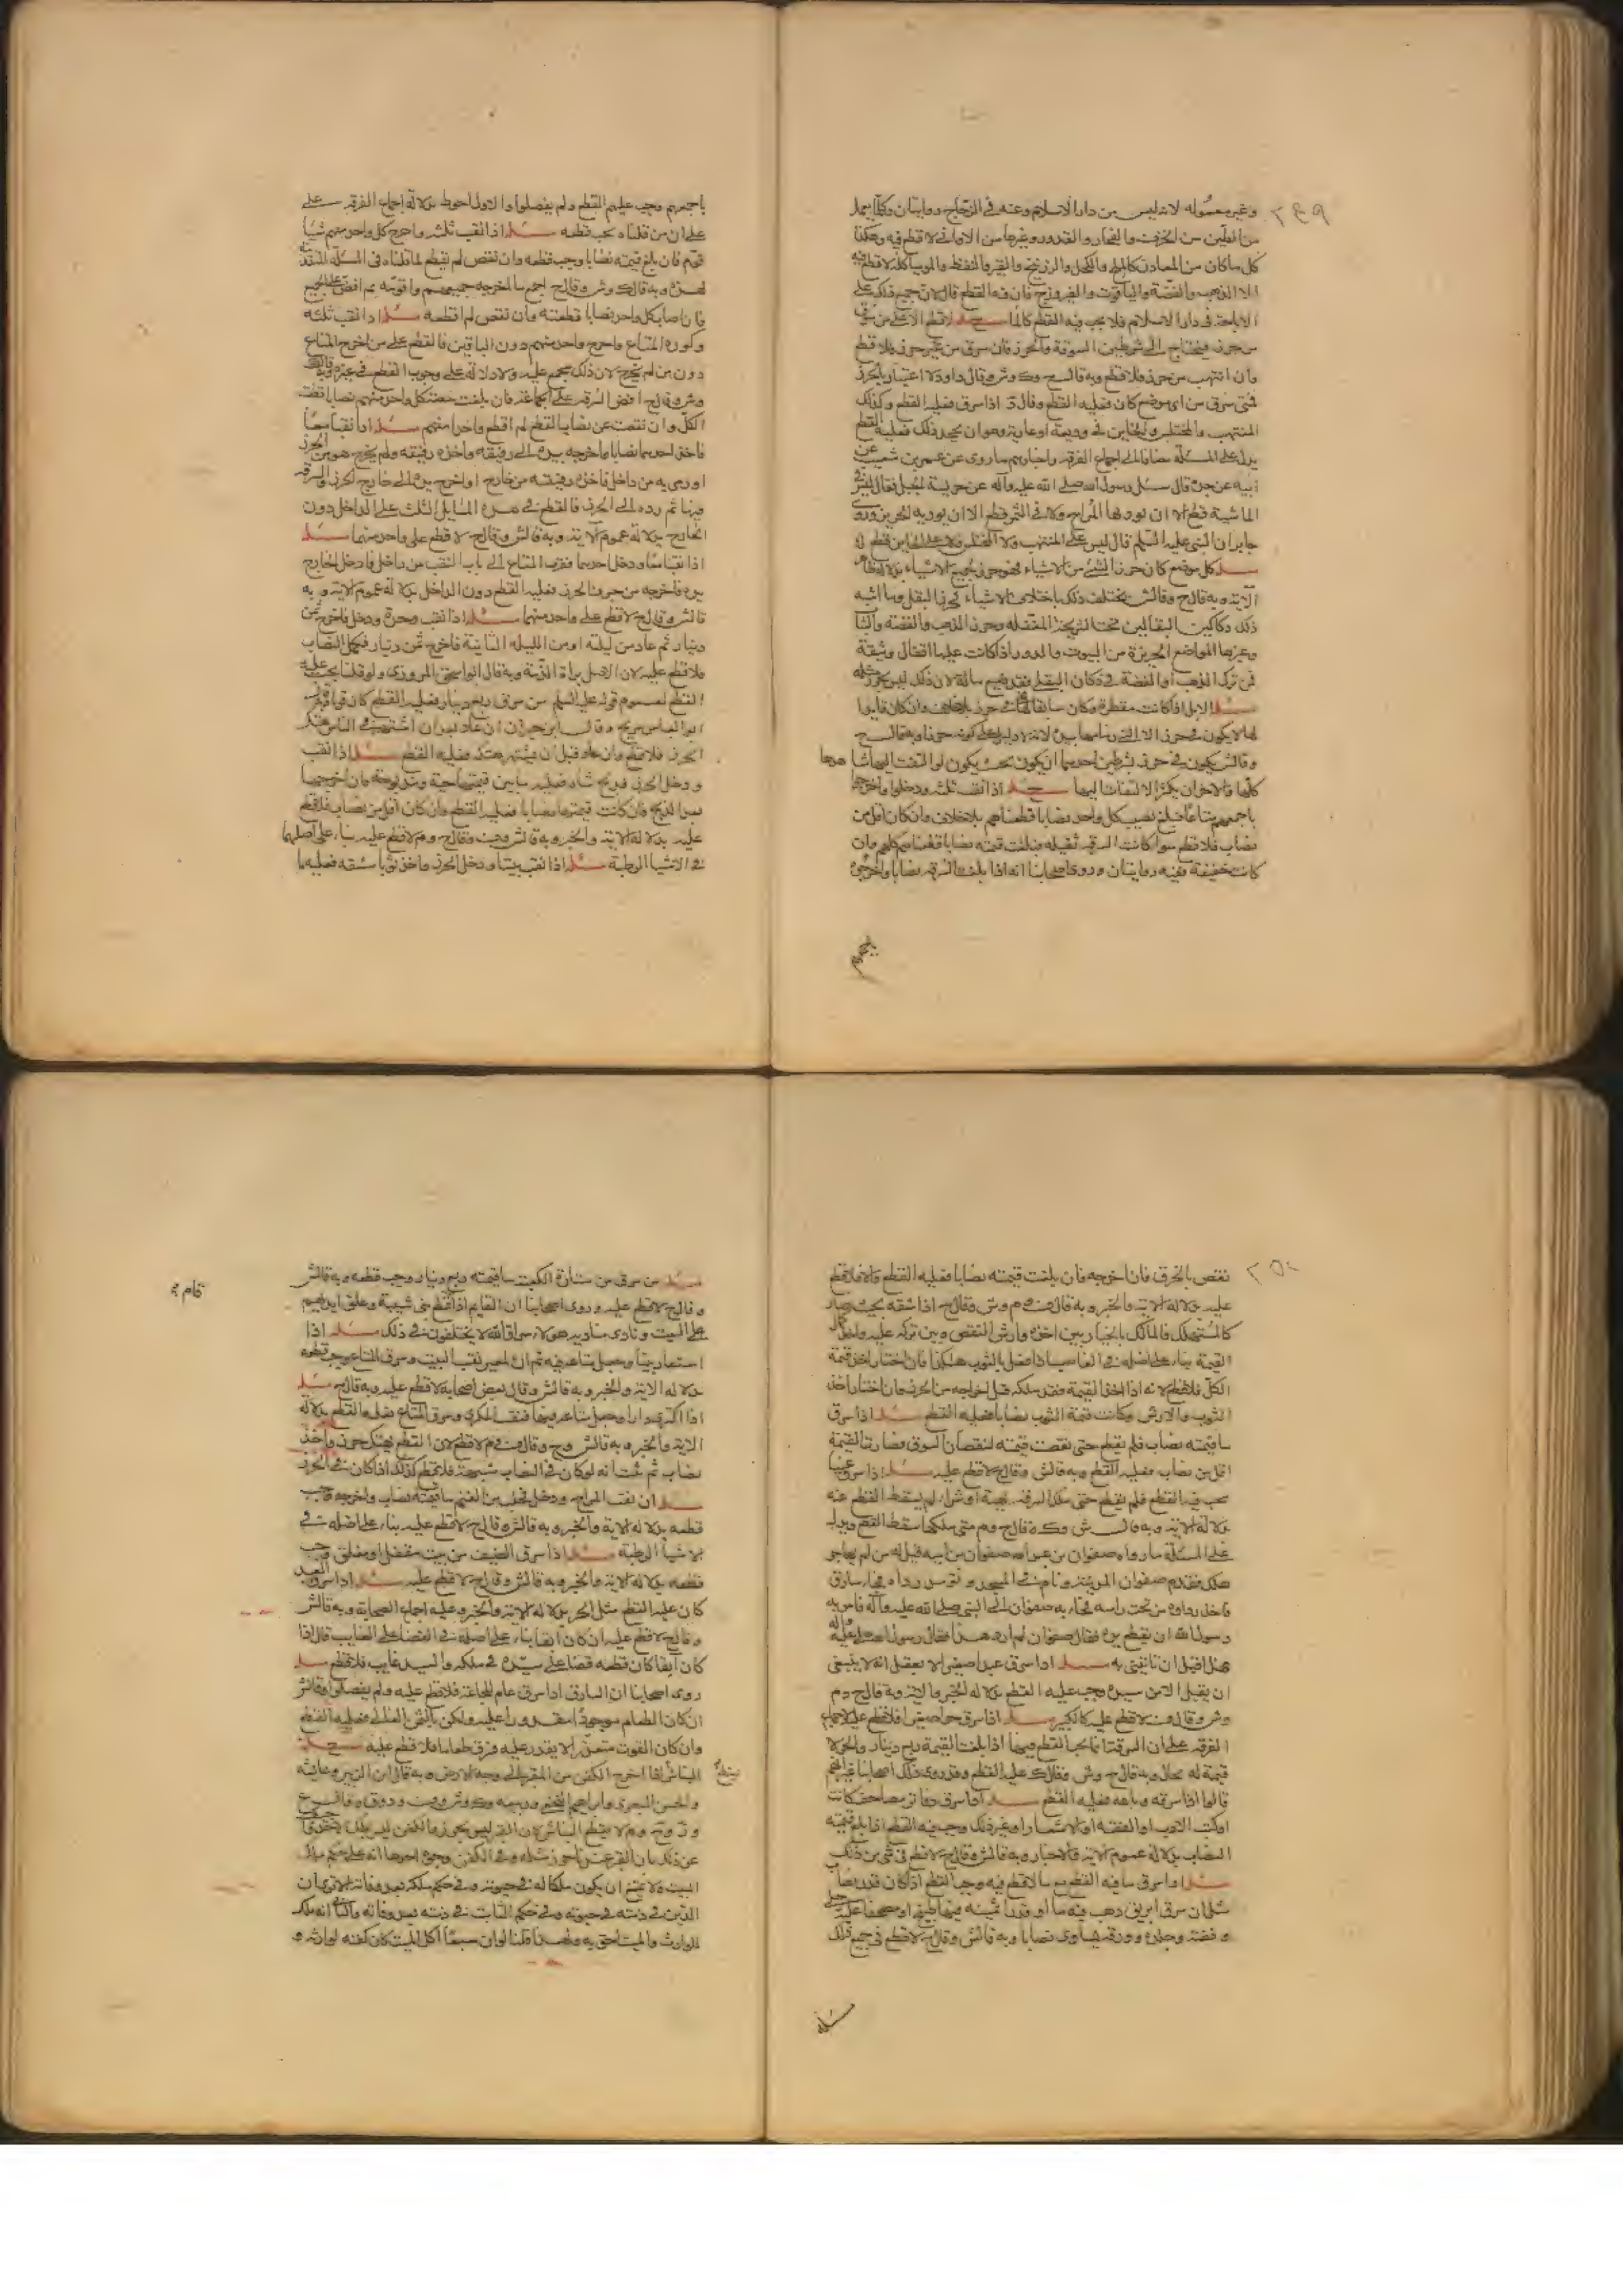 ٢٤٩
وغير معموله لانه ليس من دار الاسلام وعنه في الزجاج روايتان وكلما يعمل
من الطين من الخزف والفخار والقدور وغيرها من الاواني لا قطع فيه وهكذا
كل ما كان من المعادن كالملح والكحل والزرنيخ والقير والنفط والموميا كله لا قطع فيه
الا الذهب والفضة والياقوت والفيروزج فان فيه القطع قال لان جميع ذلك على
الاباحة في دار الاسلام فلا يجب فيه القطع كالما مسئله لا قطع الا على من سرق
من حرز فيحتاج الى شرطين السرقة والحرز فان سرق من غير حرز فلا قطع
وان انتهب من حرز فلا قطع وبه قال ح وك وش وقال داود لا اعتبار بالحرز
فمتى سرق من اي موضع كان فعليه القطع وقال د اذا سرق فعليه القطع وكذلك
المنتهب والمختلس والخاين في وديعة او عارية وهو ان يجحد ذلك فعليه القطع
يدل على المسئلة مضافا الى اجماع الفرقه واخبارهم ما روى عن عمرو بن شعيب عن
ابيه عن جده قال سئل رسول الله صلى الله عليه وآله عن حريسة الجبل فقال ليس في
الماشية قطع الا ان يوويها المراح ولا في الثمر قطع الا ان يوويه الجرين وروى
جابر ان النبي عليه السلم قال ليس على المنتهب ولا المختلس ولا على الخاين قطع
مسئله كل موضع كان حرز الشئ من الاشياء فهو حرز لجميع الاشياء بدلالة ظاهر
الآية وبه قال ح وقال ش يختلف ذلك باختلاف الاشياء فحرز البقل وما اشبه
ذلك دكاكين البقالين تحت الشريجة المقفله وحرز الذهب والفضة والثيا
وغيرها المواضع الحريزة من البيوت والدور اذا كانت عليها اقفال وثيقة
فمن ترك الذهب او الفضة في دكان البقلي فقد ضيع ماله لان ذلك ليس بحرز مثله
مسئله الابل اذا كانت مقطرة وكان سايقا لها فهي في حرز بلا خلاف وان كان قايدا
لها لا يكون في حرز الا التي زمامها بيده لانه لا دليل على كونه حرزا وبه قال ح
وقال ش يكون في حرز بشرطين احدهما ان يكون بحيث يكون لو التفت اليها شاهدها
كلها والآخر ان يكثر الالتفات اليها مسئله اذا نقب ثلثه ودخلوا واخرجوا
باجمعهم متاعا فبلغ نصيب كل واحد نصابا قطعناهم بلا خلاف وان كان اقل من
نصاب فلا قطع سوا كانت السرقه ثقيله فبلغت قيمته نصابا قطعناهم كلهم وان
كانت خفيفة ففيه روايتان وروى اصحابنا انه اذا بلغت السرقه نصابا واخرجوه
باجمعهم
باجمعهم وجب عليهم القطع ولم يفصلوا والاول احوط بدلالة اجماع الفرقه على
على ان من قلناه يجب قطعه مسئله اذا نقب ثلثه واخرج كل واحد منهم شيئا
قوم فان بلغ قيمته نصابا وجب قطعه وان نقص لم يقطع لما قلناه في المسئله المتقدمه
لهذه وبه قال ك وش وقال ح اجمع ما اخرجه جميعهم واقومه ثم افض على الجميع
فان اصاب كل واحد نصابا قطعته وان نقص لم اقطعه مسئله اذا نقب ثلثه
وكوروا المتاع واخرج واحد منهم دون الباقين فالقطع على من اخرج المتاع
دون من لم يخرج لان ذلك مجمع عليه ولا دلالة على وجوب القطع في غيره وبه قال ك
وش وقال ح افض السرقه على الجماعة فان بلغت حصة كل واحد منهم نصابا قطعت
الكل وان نقصت عن نصاب القطع لم اقطع واحدا منهم مسئله اذا نقبا معا
فاخذ احدهما نصابا واخرجه بيده الى رفيقه واخذه رفيقه ولم يخرج هو من الحرز
او رمى به من داخل فاخذه رفيقه من خارج او اخرج يده الى خارج الحرز والسرقه
فيها ثم رده الى الحرز فالقطع في هذه المسايل الثلث على الداخل دون
الخارج بدلالة عموم الآية وبه قال ش وقال ح لا قطع على واحد منهما مسئله
اذا نقبا معا ودخل احدهما فقرب المتاع الى باب النقب من داخل فادخل الخارج
يده فاخرجه من جوف الحرز فعليه القطع دون الداخل بدلالة عموم الآية وبه
قال ش وقال ح لا قطع على واحد منهما مسئله اذا نقب وحده ودخل فاخرج ثمن
دينار ثم عاد من ليلته او من الليله الثانية فاخرج ثمن دينار فكمل النصاب
فلا قطع عليه لان الاصل براءة الذمة وبه قال ابو اسحق المروزي ولو قلنا يجب عليه
القطع لعموم قوله عليه السلم من سرق ربع دينار فعليه القطع كان قويا وبه قال
ابو العباس بن سريج وقال ابن خيران ان عاد بعد ان اشتهر في الناس هتك
الحرز فلا قطع وان عاد قبل ان يشتهر هتكه فعليه القطع مسئله اذا نقب
ودخل الحرز فذبح شاة فعليه ما بين قيمتها حية ومذبوحة فان اخرجها
بعد الذبح فان كانت قيمتها نصابا فعليه القطع وان كان اقل من نصاب فلا قطع
عليه بدلالة الآية والخبر وبه قال ش وف وقال ح وم لا قطع عليه بناء على اصلهما
في الاشيا الرطبة مسئله اذا نقب بيتا ودخل الحرز واخذ ثوبا فشقه فعليه ما
٢٥٠
نقص بالخرق فان اخرجه فان بلغت قيمته نصابا فعليه القطع والا فلا قطع
عليه بدلالة الآية والخبر وبه قال ف وم وش وقال ح اذا شقه بحيث صار
كالمستهلك فالمالك بالخيار بين اخذه وارش النقص وبين تركه عليه واخذ كمال
القيمة بناء على اصله في الغاصب اذا فعل بالثوب هكذا فان اختار اخذ قيمة
الكل فلا قطع لانه اذا اخذ القيمة فقد ملكه قبل اخراجه من الحرز وان اختار اخذ
الثوب والارش وكانت قيمة الثوب نصابا فعليه القطع مسئله اذا سرق
ما قيمته نصاب فلم يقطع حتى نقصت قيمته لنقصان السوق فصارت القيمة
اقل من نصاب فعليه القطع وبه قال ش وقال ح لا قطع عليه مسئله اذا سرق عينا
يجب فيه القطع فلم يقطع حتى ملك السرقه بهبة او شراء لم يسقط القطع عنه
بدلالة الآية وبه قال ش وك وقال ح وم متى ملكها سقط القطع ويدل
على المسئلة ما رواه صفوان بن عبد الله بن صفوان عن ابيه قيل له من لم يهاجر
هلك فقدم صفوان المدينة ونام في المسجد وتوسد رداءه فجاء سارق
فاخذ رداءه من تحت راسه فجاء به صفوان الى النبي صلى الله عليه وآله فامر به
رسول الله ان يقطع يده فقال صفوان لم ارد هذا فقال رسول الله صلى الله عليه وآله
هلا قبل ان تاتيني به مسئله اذا سرق عبدا صغيرا لا يعقل انه لا ينبغي
ان يقبل الا من سيده وجب عليه القطع بدلالة الخبر والآية وبه قال ح وم
وش وقال ف لا قطع عليه كالكبير مسئله اذا سرق حرا صغيرا فلا قطع عليه لاجماع
الفرقه على ان السرقة انما يجب القطع فيها اذا بلغت القيمة ربع دينار والحر لا
قيمة له بحال وبه قال ح وش وقال ك عليه القطع وقد روى ذلك اصحابنا غير انهم
قالوا اذا سرقه وباعه فعليه القطع مسئله اذا سرق دفاتر مصاحف كانت
او كتب الادب او الفقه او الاشعار او غير ذلك وجب فيه القطع اذا بلغ قيمته
النصاب بدلالة عموم الآية والاخبار وبه قال ش وقال ح لا قطع في شئ من ذلك
مسئله اذا سرق ما فيه القطع مع ما لا قطع فيه وجب القطع اذا كان قدر نصاب
مثل ان سرق ابريق ذهب فيه ما او قدرا ثمينة فيها طبيخ او مصحفا عليه حلي
وفضة وجلده وورقه يساوي نصابا وبه قال ش وقال ح لا قطع في جميع ذلك
مسئله
مسئله من سرق من ستارة الكعبة ما قيمته ربع دينار وجب قطعه وبه قال ش
وقال ح لا قطع عليه وروى اصحابنا ان القايم اذا قام قطع بني شيبة وعلق ايديهم
على البيت ونادى مناديه هولاء سراق الله لا يختلفون في ذلك مسئله اذا
استعار بيتا وجعل متاعه فيه ثم ان المعير نقب البيت وسرق المتاع وجب قطعه
بدلالة الآية والخبر وبه قال ش وقال بعض اصحابه لا قطع عليه وبه قال ح مسئله
اذا اكترى دارا وجعل متاعه فيها فنقب المكري وسرق المتاع فعليه القطع بدلالة
الآية والخبر وبه قال ش وح وقال ف وم لا قطع لان القطع بهتك حرز واخذ
نصاب ثم ثبت انه لو كان في النصاب شبهة فلا قطع كذلك اذا كان في الحرز
مسئله ان نقب المراح ودخل فحلب من الغنم ما قيمته نصاب واخرجه وجب
قطعه بدلالة الآية والخبر وبه قال ش وقال ح لا قطع عليه بناء على اصله في
الاشيا الرطبة مسئله اذا سرق الضيف من بيت مقفل او مغلق وجب
قطعه بدلالة الآية والخبر وبه قال ش وقال ح لا قطع عليه مسئله اذا سرق العبد
كان عليه القطع مثل الحر بدلالة الآية والخبر وعليه اجماع الصحابة وبه قال ش
وقال ح لا قطع عليه ان كان آبقا بناء على اصله في القضا على الغايب قال اذا
كان آبقا كان قطعه قضا على سيده في ملكه والسيد غايب فلا قطع مسئله
روى اصحابنا ان السارق اذا سرق عام المجاعة فلا قطع عليه ولم يفصلوا وقال ش
ان كان الطعام موجودا مقدورا عليه ولكن بالثمن الغالي فعليه القطع
وان كان القوت متعذرا لا يقدر عليه فسرق طعاما فلا قطع عليه مسئله
النباش اذا اخرج الكفن من القبر الى وجه الارض وبه قال ابن الزبير وعايشه
والحسن البصري وابراهيم النخعي وربيعه وك وش وف ود وق وقال ع
وث وح وم لا يقطع النباش لان القبر ليس بحرز والكفن ليس بملك
عن ذلك بان القبر عندنا حرز مثله وفي الكفن وجوه احدها انه على حكم ملك
الميت ولا يمتنع ان يكون ملكا له في حيوته وفي حكم ملكه بعد وفاته الا ترى ان
الدين في ذمته في حيوته وفي حكم الثابت في ذمته بعد وفاته والثاني انه ملك
للوارث والميت احق به ولهذا قلنا لو ان سبعا اكل الميت كان كفنه لوارثه و
قام
يقطع